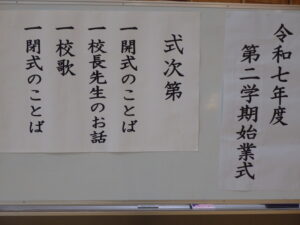 令和七年度
第二学期始業式
式次第
一開式のことば
一校長先生のお話
一校歌
一閉式のことば